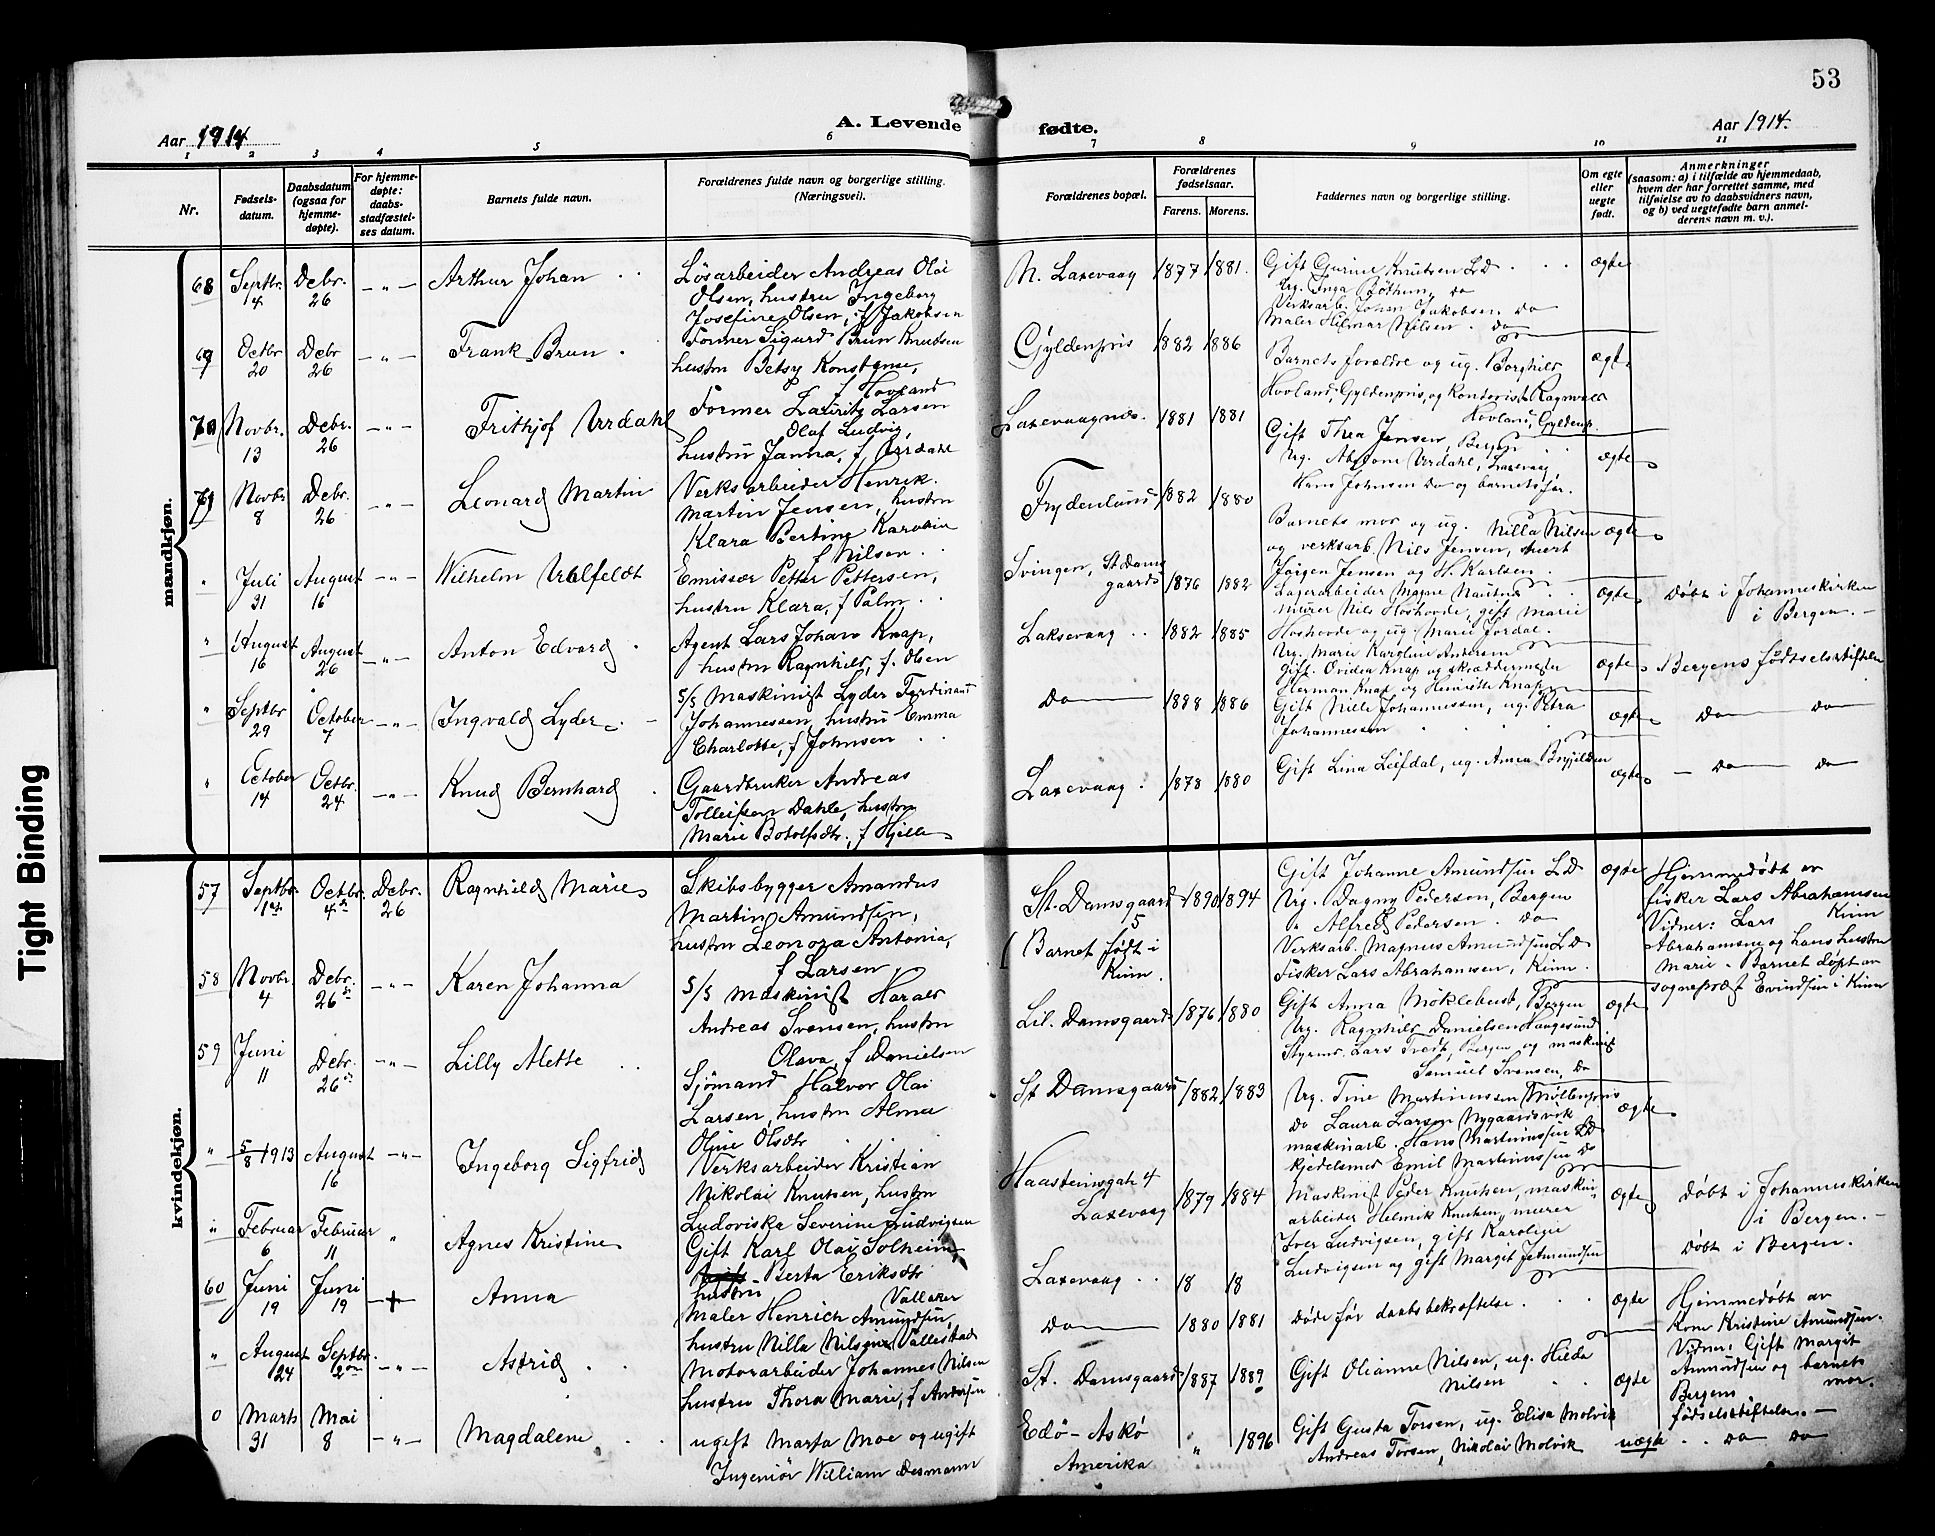 53
Tight Binding
Aar 1914
A. Levende fødte.
Aar 1914.
1 2 3 4 5 6 7 8 9 10 11
Nr.
Fødsels-
datum.
Daabsdatum
(ogsaa for
hjemme-
døpte).
For hjemme-
døpte:
daabs-
stadfæstel-
ses datum.
Barnets fulde navn.
Forældrenes fulde navn og borgerlige stilling.
(Næringsvei).
Forældrenes bopæl.
Forældrenes
fødselsaar.
Farens. Morens.
Faddernes navn og borgerlige stilling.
Om egte
eller
uegte
født.
Anmerkninger
(saasom: a) i tilfælde av hjemmedaab,
hvem der har forrettet samme, med
tilføielse av to daabsvidners navn,
og b) ved uegtefødte barn anmel-
derens navn m. v.).
mandkjøn.
68 Septbr. 4 Debr. 26 -"- Arthur Johan
Løsarbeider Andreas Olai
Olsen, hustru Ingeborg
Josefine Olsen, f Jakobsen
N. Laxevaag 1877 1881.
Gift Gurine Knutsen L D
Ug. Inga Bøthun, Do
Verksarb. Johan Jakobsen Do
Maler Hilmar Nilsen. Do
ægte
69 Octbr 20 Debr 26 -"- Frank Brun
Former Sigurd Brun Knutsen
hustru Betsy Konstanse,
f Hovland
Gyldenpris 1882 1886
Barnets forældre og ug. Borghild
Hovland, Gyldenpris, og Kontorist Ragnvald
Hovland, Gyldenp.
ægte
70 Novbr. 13 Debr. 26 -"- Frithjof Urdahl
Former Lauritz Larsen
Olaf Ludvig,
hustru Janna, f Urdahl
Laxevaagnes. 1881 1881
Gift Thea Jensen, Bergen
Ug. Urdahl, Laxevaag,
Hans Johnsen Do og barnets far.
ægte
71 Novbr 8 Debr. 26 -"- Leonard Martin
Verksarbeider Henrik
Martin Jensen, hustru
Klara Bertine Karoline
f Nilsen
Frydenlund 1882 1880
Barnets mor og ug. Nilla Nilsen
og verksarb. Nils Jensen, snert
Jørgen Jensen og H. Karlsen.
ægte
" Juli 31 August 16 -"- Wilhelm Uhlfeldt
Emissær Petter Pettersen,
hustru Klara, f Palm
Svingen, St Dams
gaard 1876 1882
Lagerarbeider Magne
murer Nils Hoshovde, gift Marie
Hoshovde og ug. Marie Jordal.
ægte
Døbt i Johanneskirken
i Bergen.-
" August 16 August 26 -"- Anton Edvard
Agent Lars Johan Knap,
hustru Ragnhild, f. Olsen
Laksevaag 1882 1885
Ug. Marie Karoline Andersen
Gift. Ovidia Knap og skræddermester
Herman Knap og Henriette Knap
ægte
Bergens fødselsstiftelse
" Septbr 29 October 7 -"- Ingvald Lyder
S/S Maskinist Lyder Ferdinand
Johannessen, hustru Emma
Charlotte, f Johnsen
Do 1888 1886
Gift Nille Johannessen, ug. Petra
Johannessen
ægte
Do Do
" October 14 Octbr. 24 -"- Knud Bernhard
Gaardbruker Andreas
Tolleifsen Dahle, hustru
Marie Botolfsdtr., f Hjelle
Laxevaag 1878 1880
Gift Lina Leifdal, ug. Anna Brynildsen
ægte
- Do Do
kvindekjøn.
57 Septbr. 1st Octbr. 4de Debr. 26 Ragnhild Marie
Skibsbygger Amandus
Martin Amundsen,
hustru Leonora Antonia,
f Larsen
St. Damsgaard 1890 1894
(Barnet født i
Kinn.
Gift Johanne Amundsen L D
Ug. Dagny Pedersen, Bergen
" Alfred Pedersen. Do
Verksarb. Magnus Amundsen L D
Fisker Lars Abrahamsen, Kinn.
ægte
Hjemmedøbt av
fisker Lars Abrahamsen
Vidner: Lars Kinn
Abrahamsen og hans hustru
Marie - Barnet døpt av
sognepræst Evindsen i Kinn
58 Novbr 4 Debr. 26de -"- Karen Johanna
S/S Maskinist Harald
Andreas Svensen, hustru
Olava, f Danielsen
Lil. Damsgaard 1876 1880
Gift Anna Möklebust, Bergen
Ug. Ragnhild Danielsen Haugesund
Styrmd. Lars Tvedt, Bergen og maskinist
Samuel Svensen, Do
ægte
59 Juni 11 Debr. 26de -"- Lilly Mette
Sjömand Halvor Olai
Larsen, hustru Alma
Oline Olsdtr
St Damsgaard 1882 1883
Ug. Tine Martinussen Møllenpris
Do Laura Larsen Nygaardsvik
maskinarb. Hans Martinussen L D
kjedelsmed Emil Martinussen Do
ægte
" 5/8 1913 August 16 -"- Ingeborg Sigfrid
Verksarbeider Kristian
Nikolai Knutsen, hustru
Ludoviska Severine Ludvigsen
Haasteinsgate 4
Laxevaag 1879 1884
Maskinist Peder Knutsen, maskin-
arbeider Helmik Knutsen, murer
Iver Ludvigsen, gift Karoline
Ludvigsen og gift Margit Jetmundsen
ægte
Døbt i Johanneskirken
i Bergen.-
" Februar 6 Februar 11 " Agnes Kristine
Gift Karl Olai Solheim
hustru Berta Eriksdtr
Vallaker
Laxevaag 18 18
Døbt i Bergen.
60 Juni 19 Juni 19 -+- Anna
Maler Henrich Amundsen,
hustru Nilla Nilsine Vallestad
Do 1880 1881
Døde før daabsbekræftelse.
ægte
Hjemmedøbt av
kone Kristine Amundsen.
Vidner: Gift Margit
Amundsen og barnets
mor.
" August 24 Septbr. 2den -"- Astrid
Motorarbeider Johannes Nilsen
hustru Thora Marie, f Andersen
St. Damsgaard 1887 1889
Gift Olianne Nilsen, ug. Hilda
Nilsen
ægte
Bergens
fødselsstiftelse.-
0 Marts 31 Mai 8 -"- Magdalene
ugift Marta Moe og ugift
Ingeniör William Desmann
Edö - Askö " 1896
Amerika "
Gift Gusta Torsen, ug. Elisa Molvik
Andreas Torsen, Nikolai Molvik
uægte
Do Do